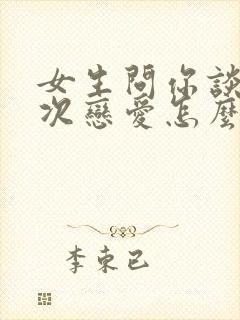 女生問你談
次戀愛怎麼
李東已